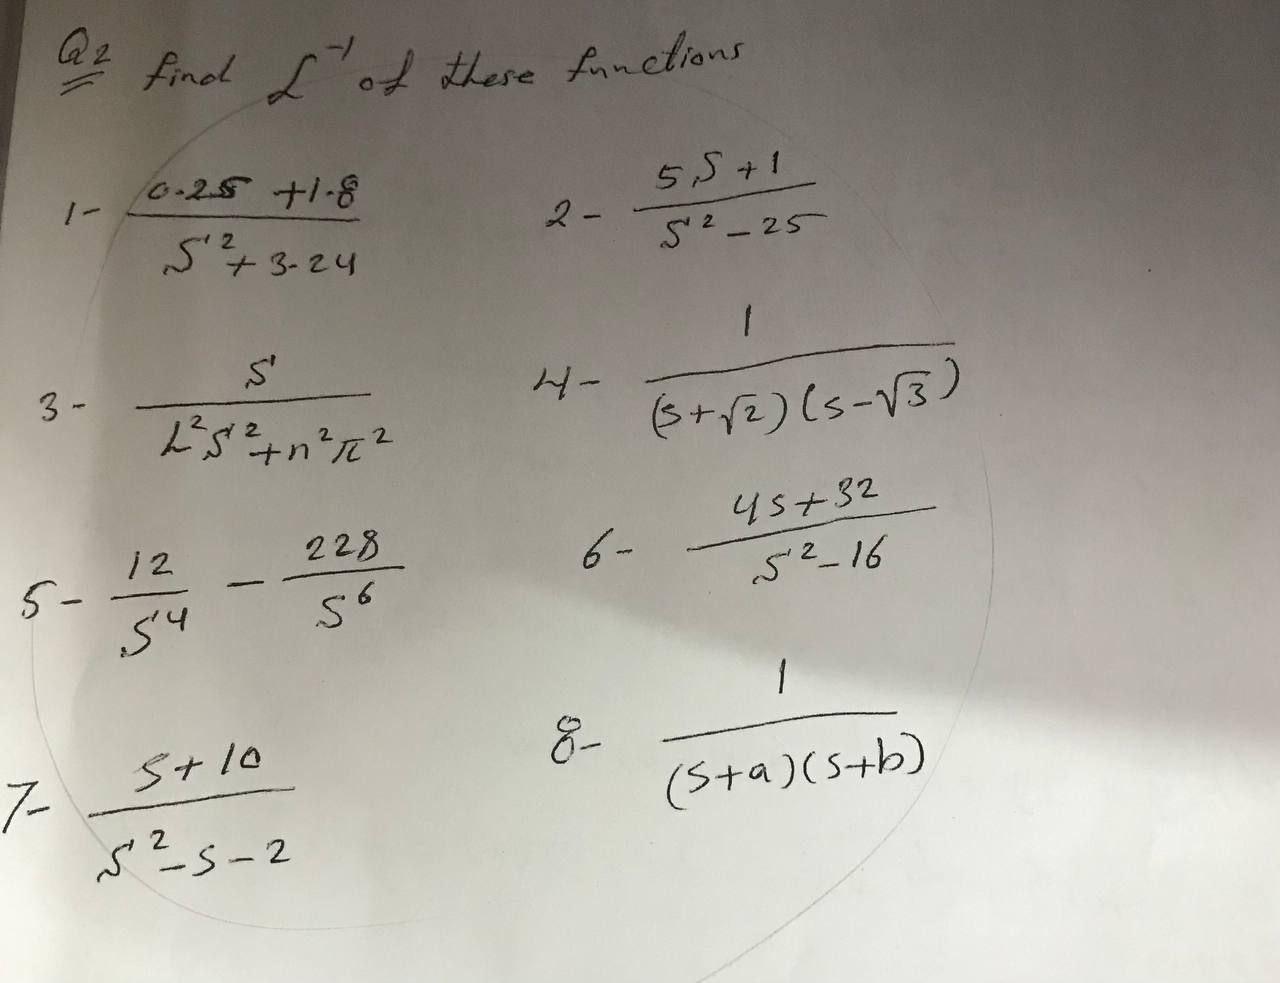 Q2 find ℒ⁻¹ of these functions
1- (0.2s + 1.8) / (s² + 3.24)
2- (5s + 1) / (s² - 25)
3- s / (L²s² + n²π²)
4- 1 / ((s + √2)(s - √3))
5- 12/s⁴ - 228/s⁶
6- (4s + 32) / (s² - 16)
7- (s + 10) / (s² - s - 2)
8- 1 / ((s + a)(s + b))